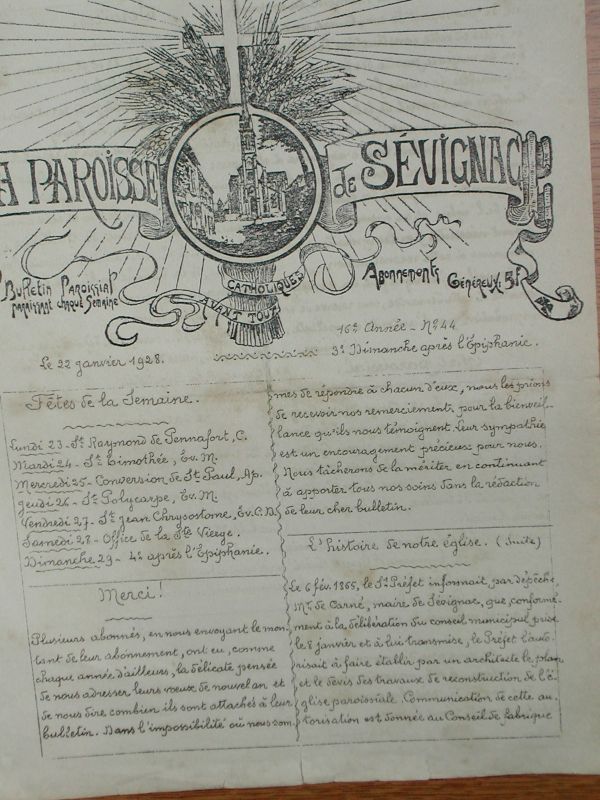 A PAROISSE
de SÉVIGNAC
Bulletin Paroissial
paraissant chaque semaine
CATHOLIQUES
AVANT TOUT
Abonnements
Généreux: 5F
Le 22 janvier 1928.
16e Année - No 44
3e Dimanche après l'Épiphanie.
Fêtes de la Semaine.
Lundi 23 - St Raymond de Pennafort, C.
Mardi 24 - St Timothée, Ev. M.
Mercredi 25 - Conversion de St Paul, Ap.
Jeudi 26 - St Polycarpe, Ev. M.
Vendredi 27 - St Jean Chrysostome, Ev. C. D.
Samedi 28 - Office de la Ste Vierge.
Dimanche 29 - 4e après l'Épiphanie.
Merci!
Plusieurs abonnés, en nous envoyant le mon
tant de leur abonnement, ont eu, comme
chaque année d'ailleurs, la délicate pensée
de nous adresser leurs vœux de nouvel an et
de nous dire combien ils sont attachés à leur
bulletin. Dans l'impossibilité où nous som
mes de répondre à chacun d'eux, nous les prions
de recevoir nos remerciements pour la bienveil
lance qu'ils nous témoignent. Leur sympathie
est un encouragement précieux pour nous.
Nous tâcherons de la mériter en continuant
à apporter tous nos soins dans la rédaction
de leur cher bulletin.
L'histoire de notre église. (Suite)
Le 6 fév. 1865, le Sr Préfet informait, par dépêche,
Mr de Carné, maire de Sévignac, que, conformé-
ment à la délibération du conseil municipal prise
le 8 janvier et à lui transmise, le Préfet l'auto
risait à faire établir par un architecte le plan
et le devis des travaux de reconstruction de l'é-
glise paroissiale. Communication de cette au
torisation est donnée au Conseil de fabrique